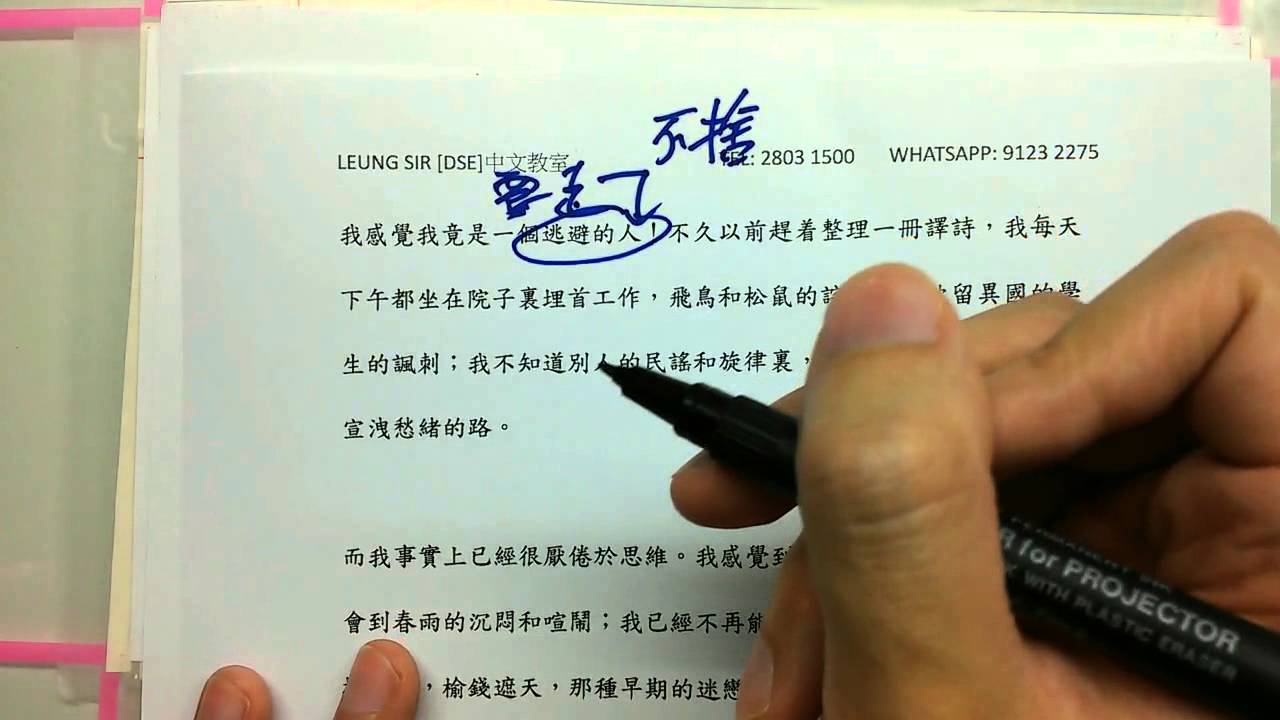 不捨
LEUNG SIR [DSE]中文教室 TEL: 2803 1500 WHATSAPP: 9123 2275
要走了
我感覺我竟是一個逃避的人！不久以前趕着整理一冊譯詩，我每天
下午都坐在院子裏埋首工作，飛鳥和松鼠的 留異國的學
生的諷刺；我不知道別人的民謠和旋律裏，
宣洩愁緒的路。
而我事實上已經很厭倦於思維。我感覺到
會到春雨的沉悶和喧鬧；我已經不再能
，榆錢遮天，那種早期的迷戀
for PROJECTOR
WITH PLASTIC ERASER